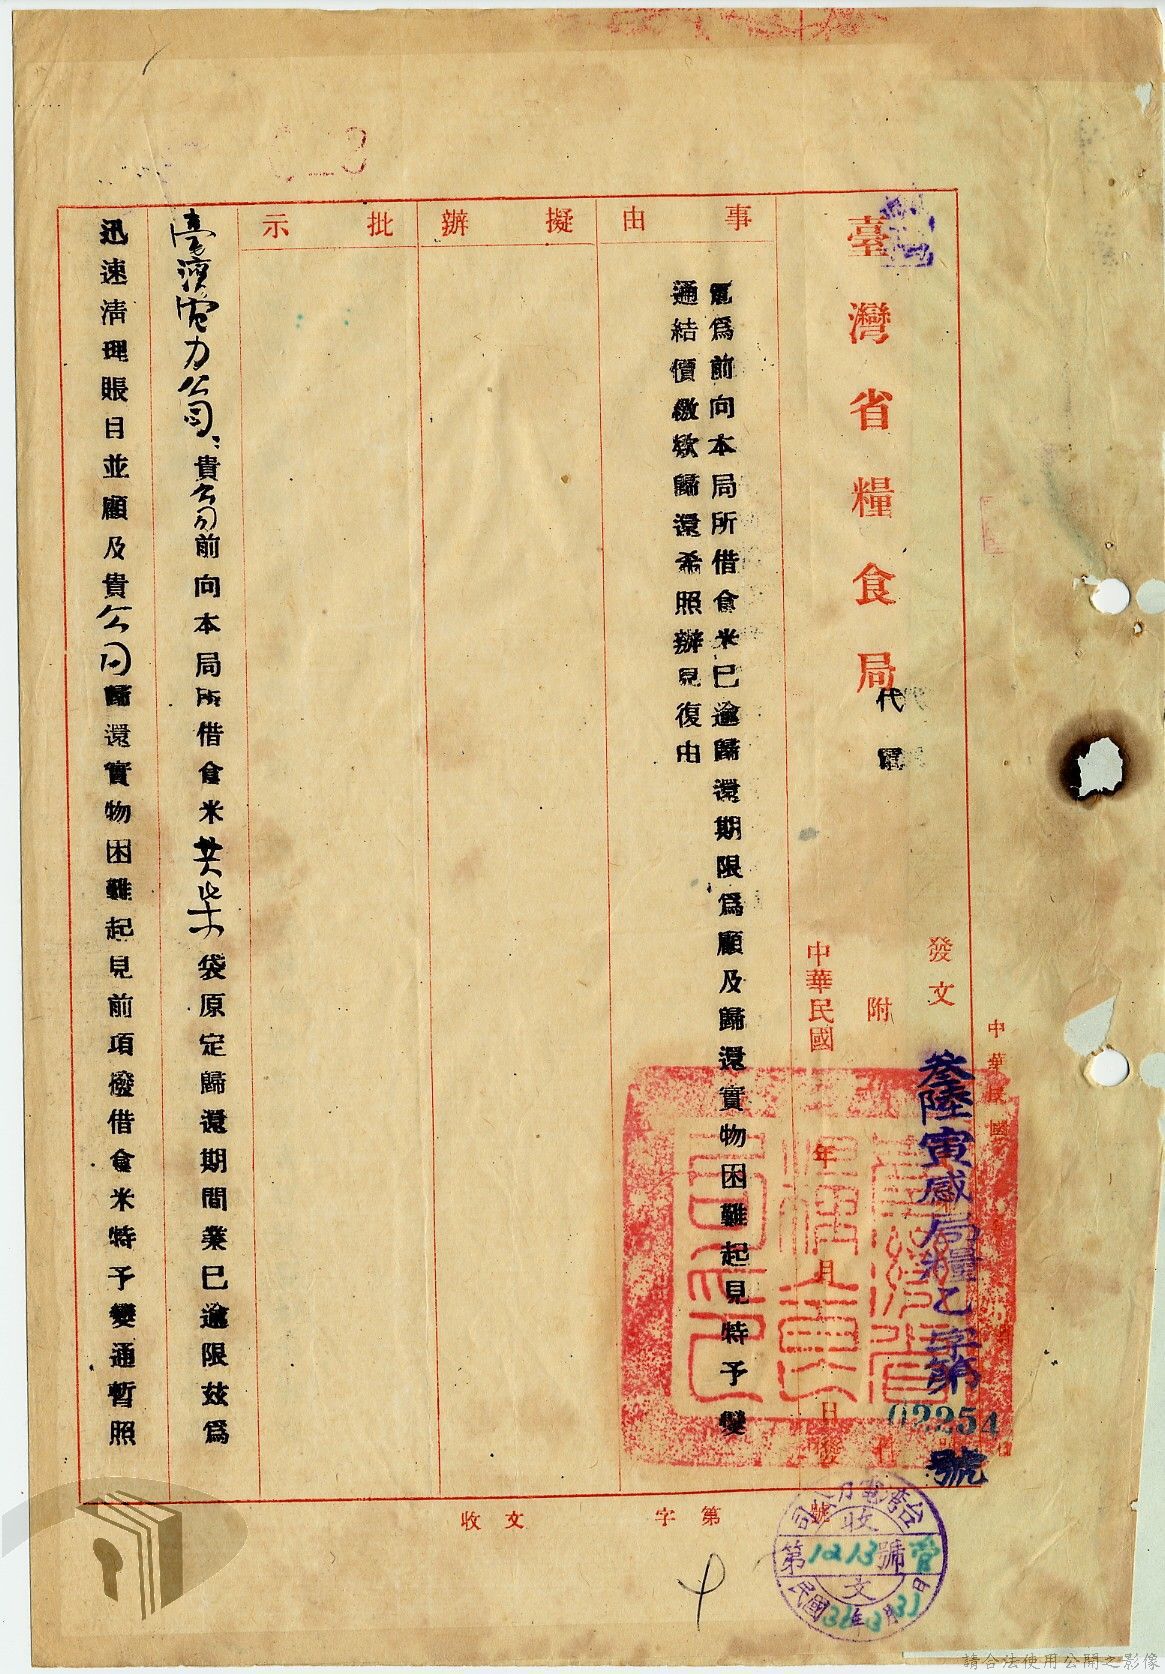 臺灣省糧食局
代電
發文
叁陸寅感局糧乙字第
02254
號
附
件
中華民國
年
月
日發
事由
電爲前向本局所借食米已逾歸還期限爲顧及歸還實物困難起見特予變
通結價繳欵歸還希照辦見復由
擬辦
批示
臺灣電力公司：貴公司前向本局所借食米共柒袋原定歸還期間業已逾限玆爲
迅速清理賬目並顧及貴公司歸還實物困難起見前項撥借食米特予變通暫照
中華民國
收文
字第
號
台灣電力公司
收
第1213號
文
民國36年3月31日
請合法使用公開之影像